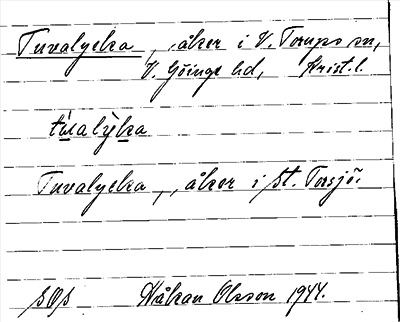 Tuvalycka, åker i V. Torups sn,
V. Göinge hd, Krist. l.
tùvalỳka
Tuvalycka, åker i St. Torsjö.
SOS Håkan Olsson 1944.